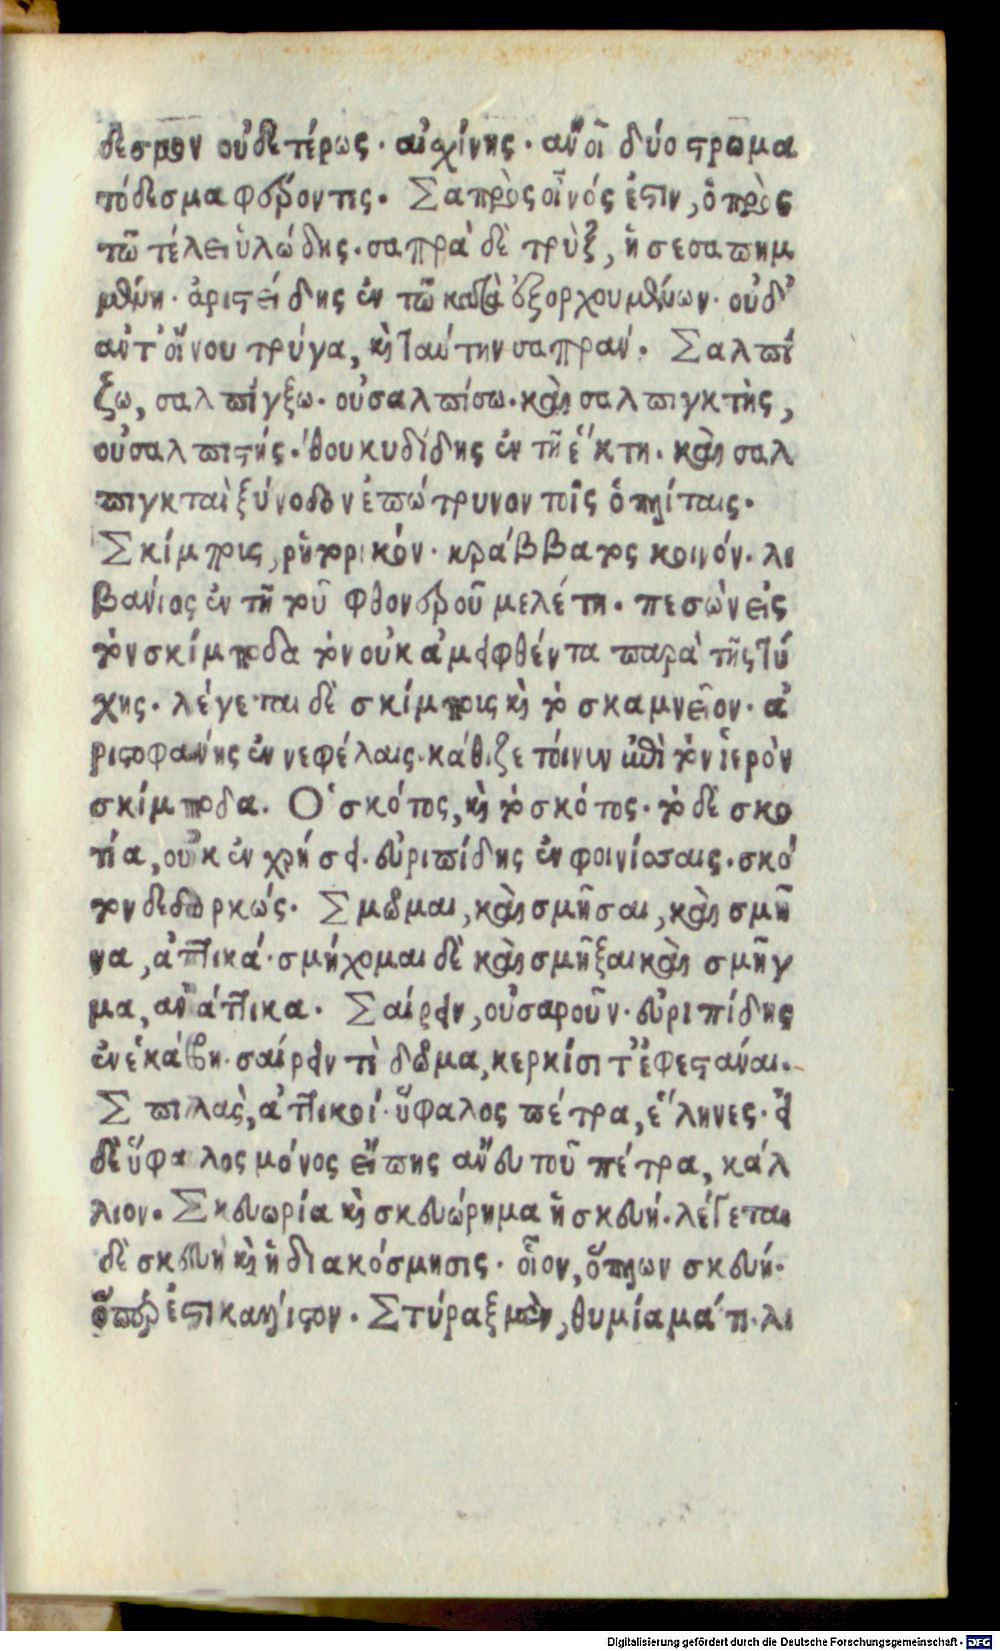 δεσμον οὐδετέρως· αἰσχίνης· ἂν οἱ δύο στρωμα
τόδεσμα φέροντες. Σαπρὸς οἶνός ἐστιν, ὁ πρὸς
τῶ τέλει ὑλώδης· σαπρὰ δὲ τρὺξ, ἡ σεσαπημ
μένη· ἀριστείδης ἐν τῶ κατὰ ἐξορχουμένων· οὐδ᾽
αὐτ᾽ οἴνου τρύγα, καὶ ταύτην σαπράν. Σαλπί
ζω, σαλπίγξω· οὐ σαλπίσω· καὶ σαλπιγκτὴς,
οὐ σαλπιστής· θουκυδίδης ἐν τῇ ἕκτῃ· καὶ σαλ
πιγκταὶ ξύνοδον ἐπώτρυνον τοῖς ὁπλίταις.
Σκίμπους, ῥητορικόν· κράββατος κοινόν· λι
βάνιος ἐν τῇ τοῦ φθονεροῦ μελέτῃ· πεσὼν εἰς
τὸν σκίμποδα τὸν οὐκ ἀμειφθέντα παρὰ τῆς τύ
χης· λέγεται δὲ σκίμπους καὶ τὸ σκαμνεῖον· ἀ
ριστοφάνης ἐν νεφέλαις· κάθιζε τοίνυν ἐπὶ τὸν ἱερὸν
σκίμποδα. Ὁ σκότος, καὶ τὸ σκότος· τὸ δὲ σκο
τία, οὐκ ἐν χρήσει· εὐριπίδης ἐν φοινίσσαις· σκό
τον δεδορκώς. Σμῶμαι, καὶ σμῆσαι, καὶ σμῆ
γα, ἀττικά· σμήχομαι δὲ καὶ σμῆξαι καὶ σμῆγ
μα, ἀνάττικα. Σαίρειν, οὐ σαροῦν· εὐριπίδης
ἐν ἑκάβῃ· σαίρειν τὲ δῶμα, κερκίσι τ᾽ ἐφεστάναι.
Σπιλὰς, ἀττικοί· ὕφαλος πέτρα, ἕλληνες· εἰ
δὲ ὕφαλος μόνος εἴπῃς ἄνευ τοῦ πέτρα, κάλ
λιον. Σκευωρία καὶ σκευώρημα ἡ σκευή· λέγεται
δὲ σκευὴ καὶ ἡ διακόσμησις· οἷον, ὅπλων σκευή·
ὅπερ ἐστὶ κάλλιστον. Στύραξ μὲν, θυμίαμά τι· λι
Digitalisierung gefördert durch die Deutsche Forschungsgemeinschaft - DFG